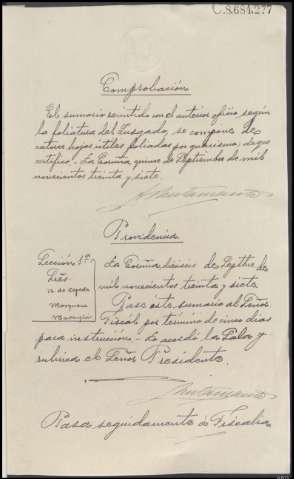 C.8.684.277
Comprobación
El sumario remitido en el anterior oficio según
la foliatura del Juzgado, se compone de
catorce hojas utiles foliadas por guarismos; de que
certifico.- La Coruña quince de Septiembre de mil
novecientos treinta y siete.
Providencia
Sección 1ª
La Coruña dieciseis de Septbre de
mil novecientos treinta y siete
Pase este sumario al Señor
Fiscal por término de cinco dias
para instrucción.- Lo acordó la Sala y
rubrica el Señor Presidente.
Pasa seguidamente a Fiscalia